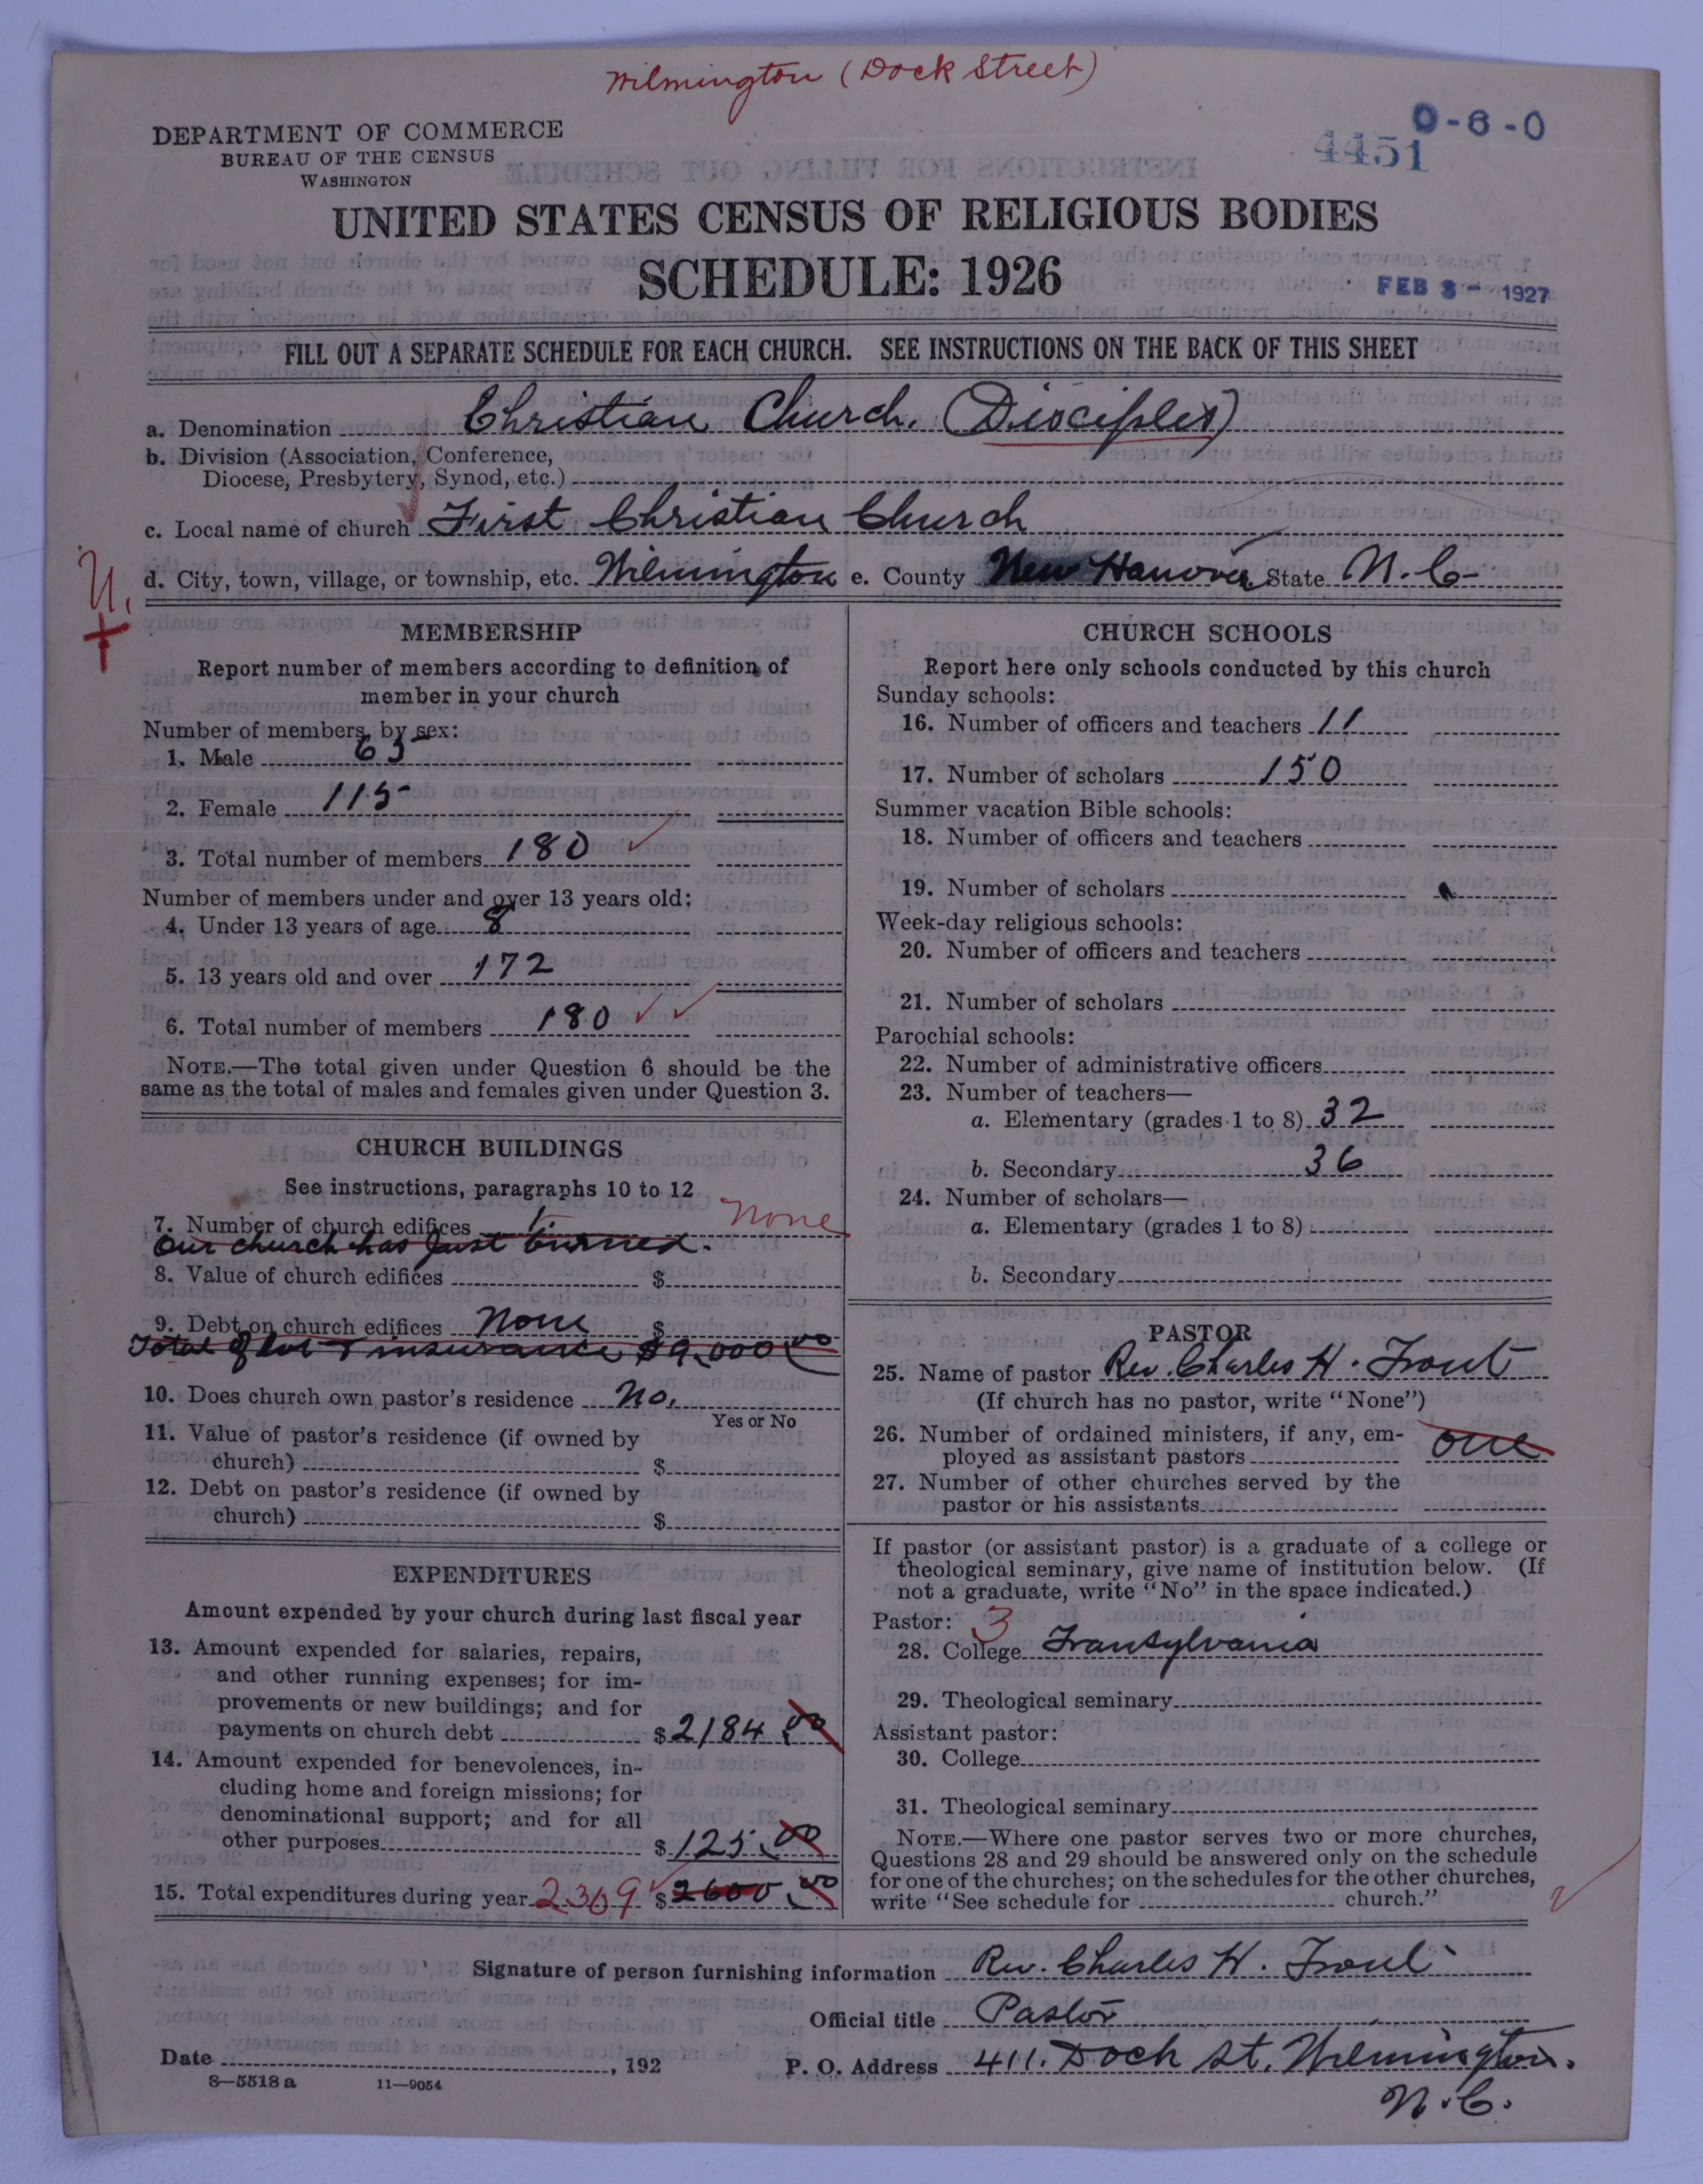 Wilmington (Dock Street)
DEPARTMENT OF COMMERCE
BUREAU OF THE CENSUS
WASHINGTON
0-6-0
4451
UNITED STATES CENSUS OF RELIGIOUS BODIES
SCHEDULE: 1926
FEB 3 - 1927
FILL OUT A SEPARATE SCHEDULE FOR EACH CHURCH. SEE INSTRUCTIONS ON THE BACK OF THIS SHEET
a. Denomination Christian Church. (Disciples)
b. Division (Association, Conference,
Diocese, Presbytery, Synod, etc.)
c. Local name of church First Christian Church
d. City, town, village, or township, etc. Wilmington e. County New Hanover State N.C.
MEMBERSHIP
Report number of members according to definition of
member in your church
Number of members, by sex:
1. Male 65
2. Female 115
3. Total number of members 180
Number of members under and over 13 years old:
4. Under 13 years of age 8
5. 13 years old and over 172
6. Total number of members 180
NOTE.—The total given under Question 6 should be the
same as the total of males and females given under Question 3.
CHURCH BUILDINGS
See instructions, paragraphs 10 to 12
7. Number of church edifices 1. None
Our church has just burned.
8. Value of church edifices $
9. Debt on church edifices None $
Total of lot & insurance $9,000 00
10. Does church own pastor's residence No.
Yes or No
11. Value of pastor's residence (if owned by
church) $
12. Debt on pastor's residence (if owned by
church) $
EXPENDITURES
Amount expended by your church during last fiscal year
13. Amount expended for salaries, repairs,
and other running expenses; for im-
provements or new buildings; and for
payments on church debt $ 2184 00
14. Amount expended for benevolences, in-
cluding home and foreign missions; for
denominational support; and for all
other purposes $ 125.00
15. Total expenditures during year 2309 $ 2600.00
CHURCH SCHOOLS
Report here only schools conducted by this church
Sunday schools:
16. Number of officers and teachers 11
17. Number of scholars 150
Summer vacation Bible schools:
18. Number of officers and teachers
19. Number of scholars
Week-day religious schools:
20. Number of officers and teachers
21. Number of scholars
Parochial schools:
22. Number of administrative officers
23. Number of teachers—
a. Elementary (grades 1 to 8) 32
b. Secondary 36
24. Number of scholars—
a. Elementary (grades 1 to 8)
b. Secondary
PASTOR
25. Name of pastor Rev. Charles H. Trout
(If church has no pastor, write "None")
26. Number of ordained ministers, if any, em-
ployed as assistant pastors one
27. Number of other churches served by the
pastor or his assistants
If pastor (or assistant pastor) is a graduate of a college or
theological seminary, give name of institution below. (If
not a graduate, write "No" in the space indicated.)
Pastor: 3
28. College Transylvania
29. Theological seminary
Assistant pastor:
30. College
31. Theological seminary
NOTE.—Where one pastor serves two or more churches,
Questions 28 and 29 should be answered only on the schedule
for one of the churches; on the schedules for the other churches,
write "See schedule for church."
Signature of person furnishing information Rev. Charles H. Trout
Official title Pastor
Date , 192 P. O. Address 411. Dock St. Wilmington.
N.C.
8—5518 a 11—9054